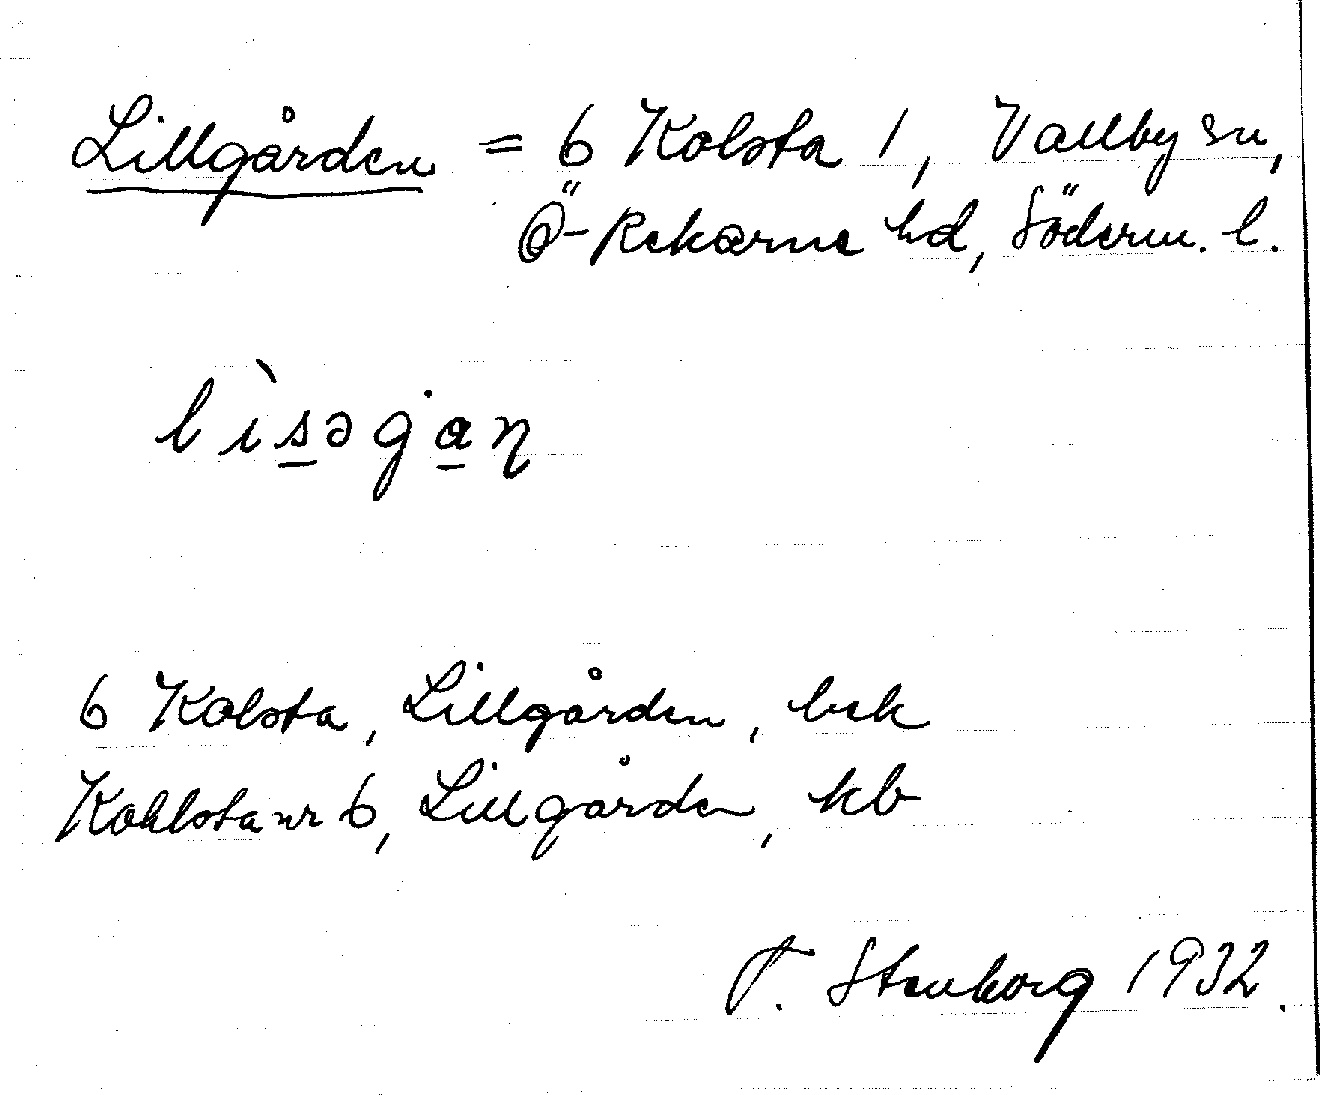 Lillgården = 6 Kolsta 1, Vallby sn,
Ö-Rekarne hd, Söderm. l.
lìsəgạn
6 Kolsta, Lillgården, bek
Kohlsta nr 6, Lillgården, kb
T. Stenborg 1932.